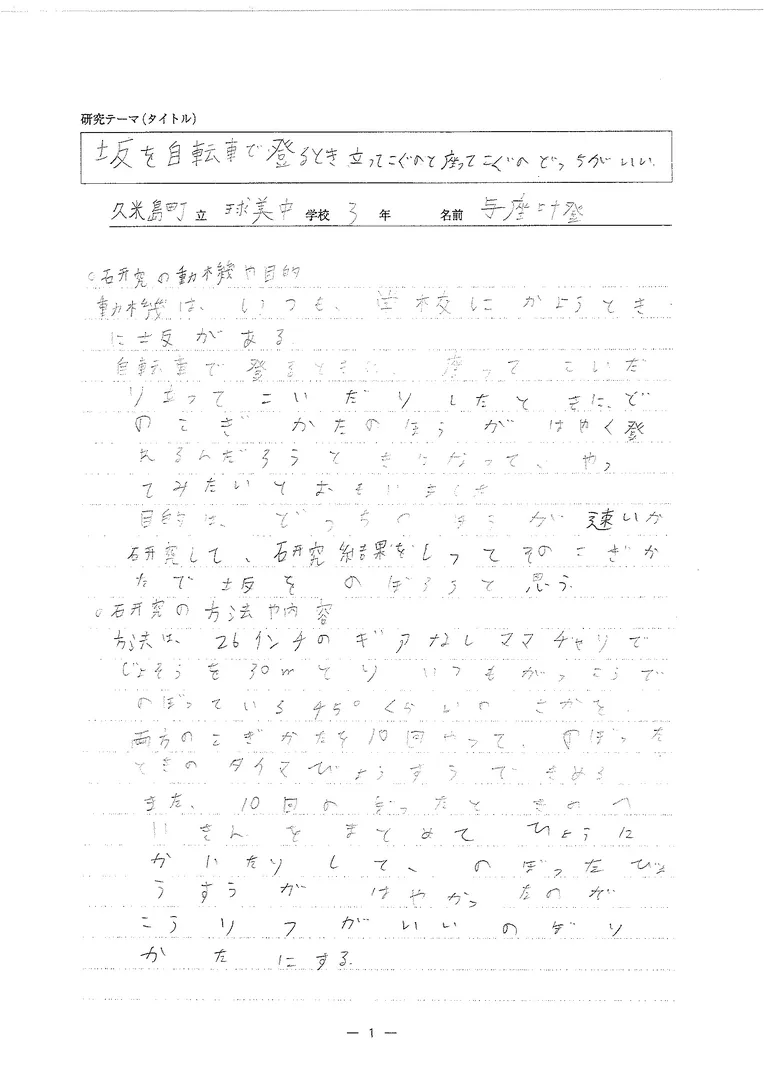 研究テーマ(タイトル)
坂を自転車で登るとき立ってこぐのと座ってこぐのどっちがいい.
久米島町 立 球美中 学校 3 年 名前 与座 登
○研究の動機や目的
動機は、いつも、学校にかようとき
に坂がある.
自転車で登るときに、座ってこいだ
り立ってこいだりしたときに、ど
のこぎかたのほうがはやく登
れるんだろうときになって、やっ
てみたいとおもいました
目的は、どっちのほうが速いか
研究して、研究結果をしってそのこぎか
たで坂をのぼろうと思う.
○研究の方法や内容
方法は、26インチのギアなしママチャリで
じょそうを30mとりいつもがっこうで
のぼっている45°くらいのさかを.
両方のこぎかたを10回やって、のぼった
ときのタイマびょうすうできめる
また、10回のぼったときのへ
いきんをまとめてひょうに
かいたりして、のぼったびょ
うすうがはやかったのが
こうりつがいいのぼり
かたにする.
— 1 —